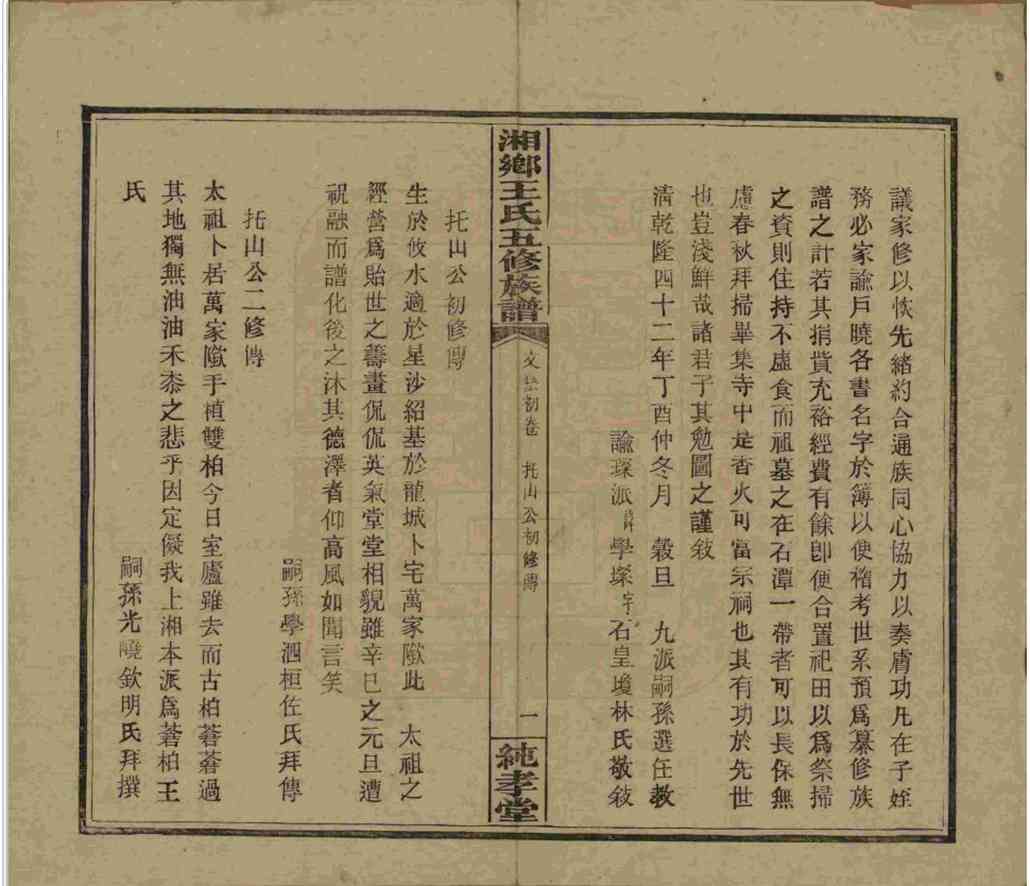 議家修以恢先緒約合通族同心協力以奏膚功凡在子姪
務必家諭戶曉各書名字於簿以使稽考世系預爲纂修族
譜之計若其捐貲充裕經費有餘卽便合置祀田以爲祭掃
之資則住持不虛食而祖墓之在石潭一帶者可以長保無
慮春秋拜掃畢集寺中是香火可當宗祠也其有功於先世
也豈淺鮮哉諸君子其勉圖之謹敍
清乾隆四十二年丁酉仲冬月　穀旦　九派嗣孫選任教
諭琛派諱學璨字石皇瓊林氏敬敍
湘鄉王氏五修族譜
文 初卷　托山公初修傳　一
純孝堂
托山公初修傳
生於攸水適於星沙紹基於龍城卜宅萬家隞此　太祖之
經營爲貽世之善畫侃侃英氣堂堂相貌雖辛巳之元旦遭
祝融而譜化後之沐其德澤者仰高風如聞言笑
嗣孫學泗桓佐氏拜傳
托山公二修傳
太祖卜居萬家隞手植雙柏今日室廬雖去而古柏蒼蒼過
其地獨無油油禾黍之悲乎因定儗我上湘本派爲蒼柏王
氏
嗣孫光曉欽明氏拜撰